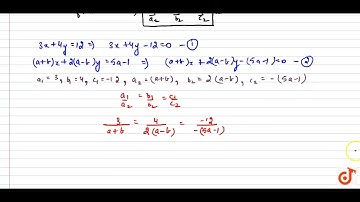 a₂ b₂ c₂
3x+4y=12 ⇒ 3x+4y-12=0 -①
(a+b)x+2(a-b)y=5a-1 ⇒ (a+b)x+2(a-b)y-(5a-1)=0 -②
a₁=3, b₁=4, c₁=-12, a₂=(a+b), b₂=2(a-b), c₂=-(5a-1)
a₁/a₂ = b₁/b₂ = c₁/c₂
3/(a+b) = 4/2(a-b) = -12/-(5a-1)
doubtnut